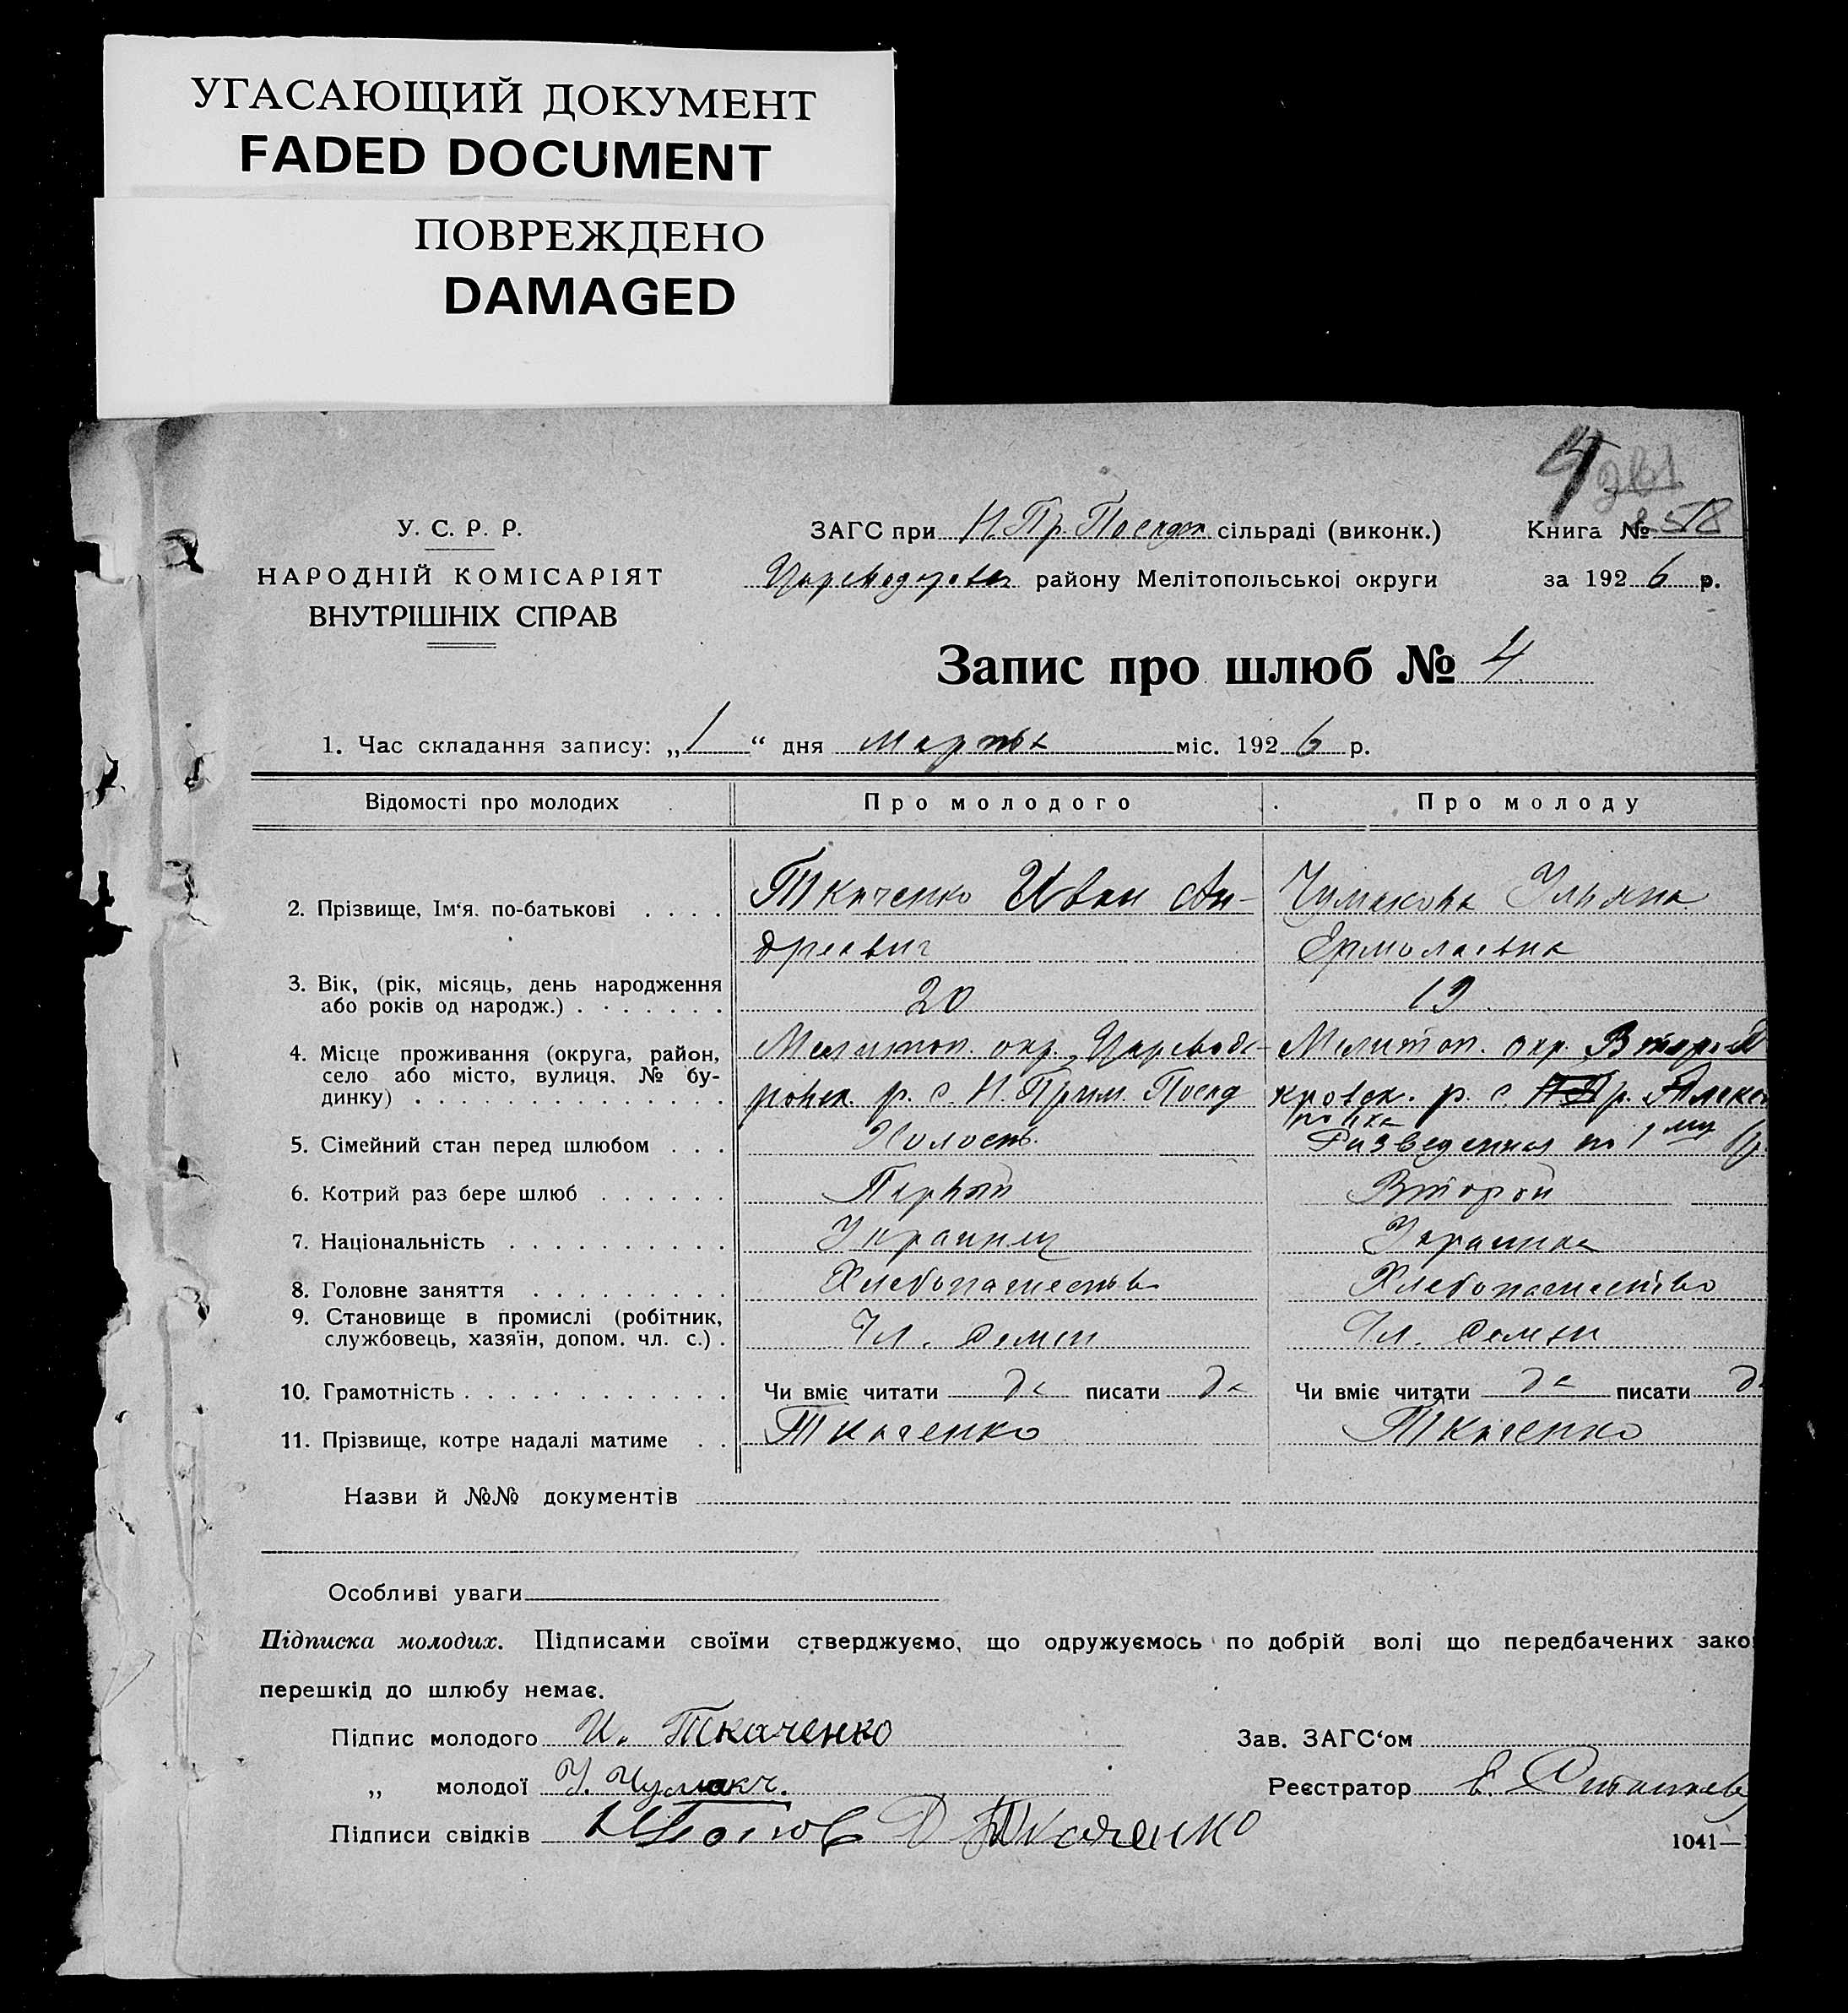 УГАСАЮЩИЙ ДОКУМЕНТ
FADED DOCUMENT
ПОВРЕЖДЕНО
DAMAGED
4
У. С. Р. Р.
НАРОДНІЙ КОМІСАРІЯТ
ВНУТРІШНІХ СПРАВ
ЗАГС при Н. Пр. Посадт сільраді (виконк.)
району Мелітопольської округи
Книга № 58
за 1926 р.
Запис про шлюб № 4
1. Час складання запису: „1“ дня марта міс. 1926 р.
Відомості про молодих Про молодого Про молоду
2. Прізвище, Ім‘я, по-батькові . . . . Ткаченко Иван Ан- Чумакова Ульяна
дреевич Ермолаевна
3. Вік, (рік, місяць, день народження
або років од народж.) . . . . . . . 20 19
4. Місце проживання (округа, район, Мелитоп. окр. Мелитоп. окр.
село або місто, вулиця, № бу-
динку) . . . . . . . . . . . . . . р. с. Н. Прим. Посад кровск. р. с.
5. Сімейний стан перед шлюбом . . . Холост. Разведенная по 1му
6. Котрий раз бере шлюб . . . . . . Первый Второй
7. Національність . . . . . . . . . . Украинец Украинка
8. Головне заняття . . . . . . . . . Хлебопашество Хлебопашество
9. Становище в промислі (робітник,
службовець, хазяїн, допом. чл. с.) . Чл. семьи Чл. семьи
10. Грамотність . . . . . . . . . . . . Чи вміє читати да писати да Чи вміє читати да писати да
11. Прізвище, котре надалі матиме . . Ткаченко Ткаченко
Назви й №№ документів
Особливі уваги
Підписка молодих. Підписами своїми стверджуємо, що одружуємось по добрій волі що передбачених зако
перешкід до шлюбу немає.
Підпис молодого И. Ткаченко Зав. ЗАГС‘ом
„ молодої У. Чумак Реєстратор
Підписи свідків Ткаченко
1041—